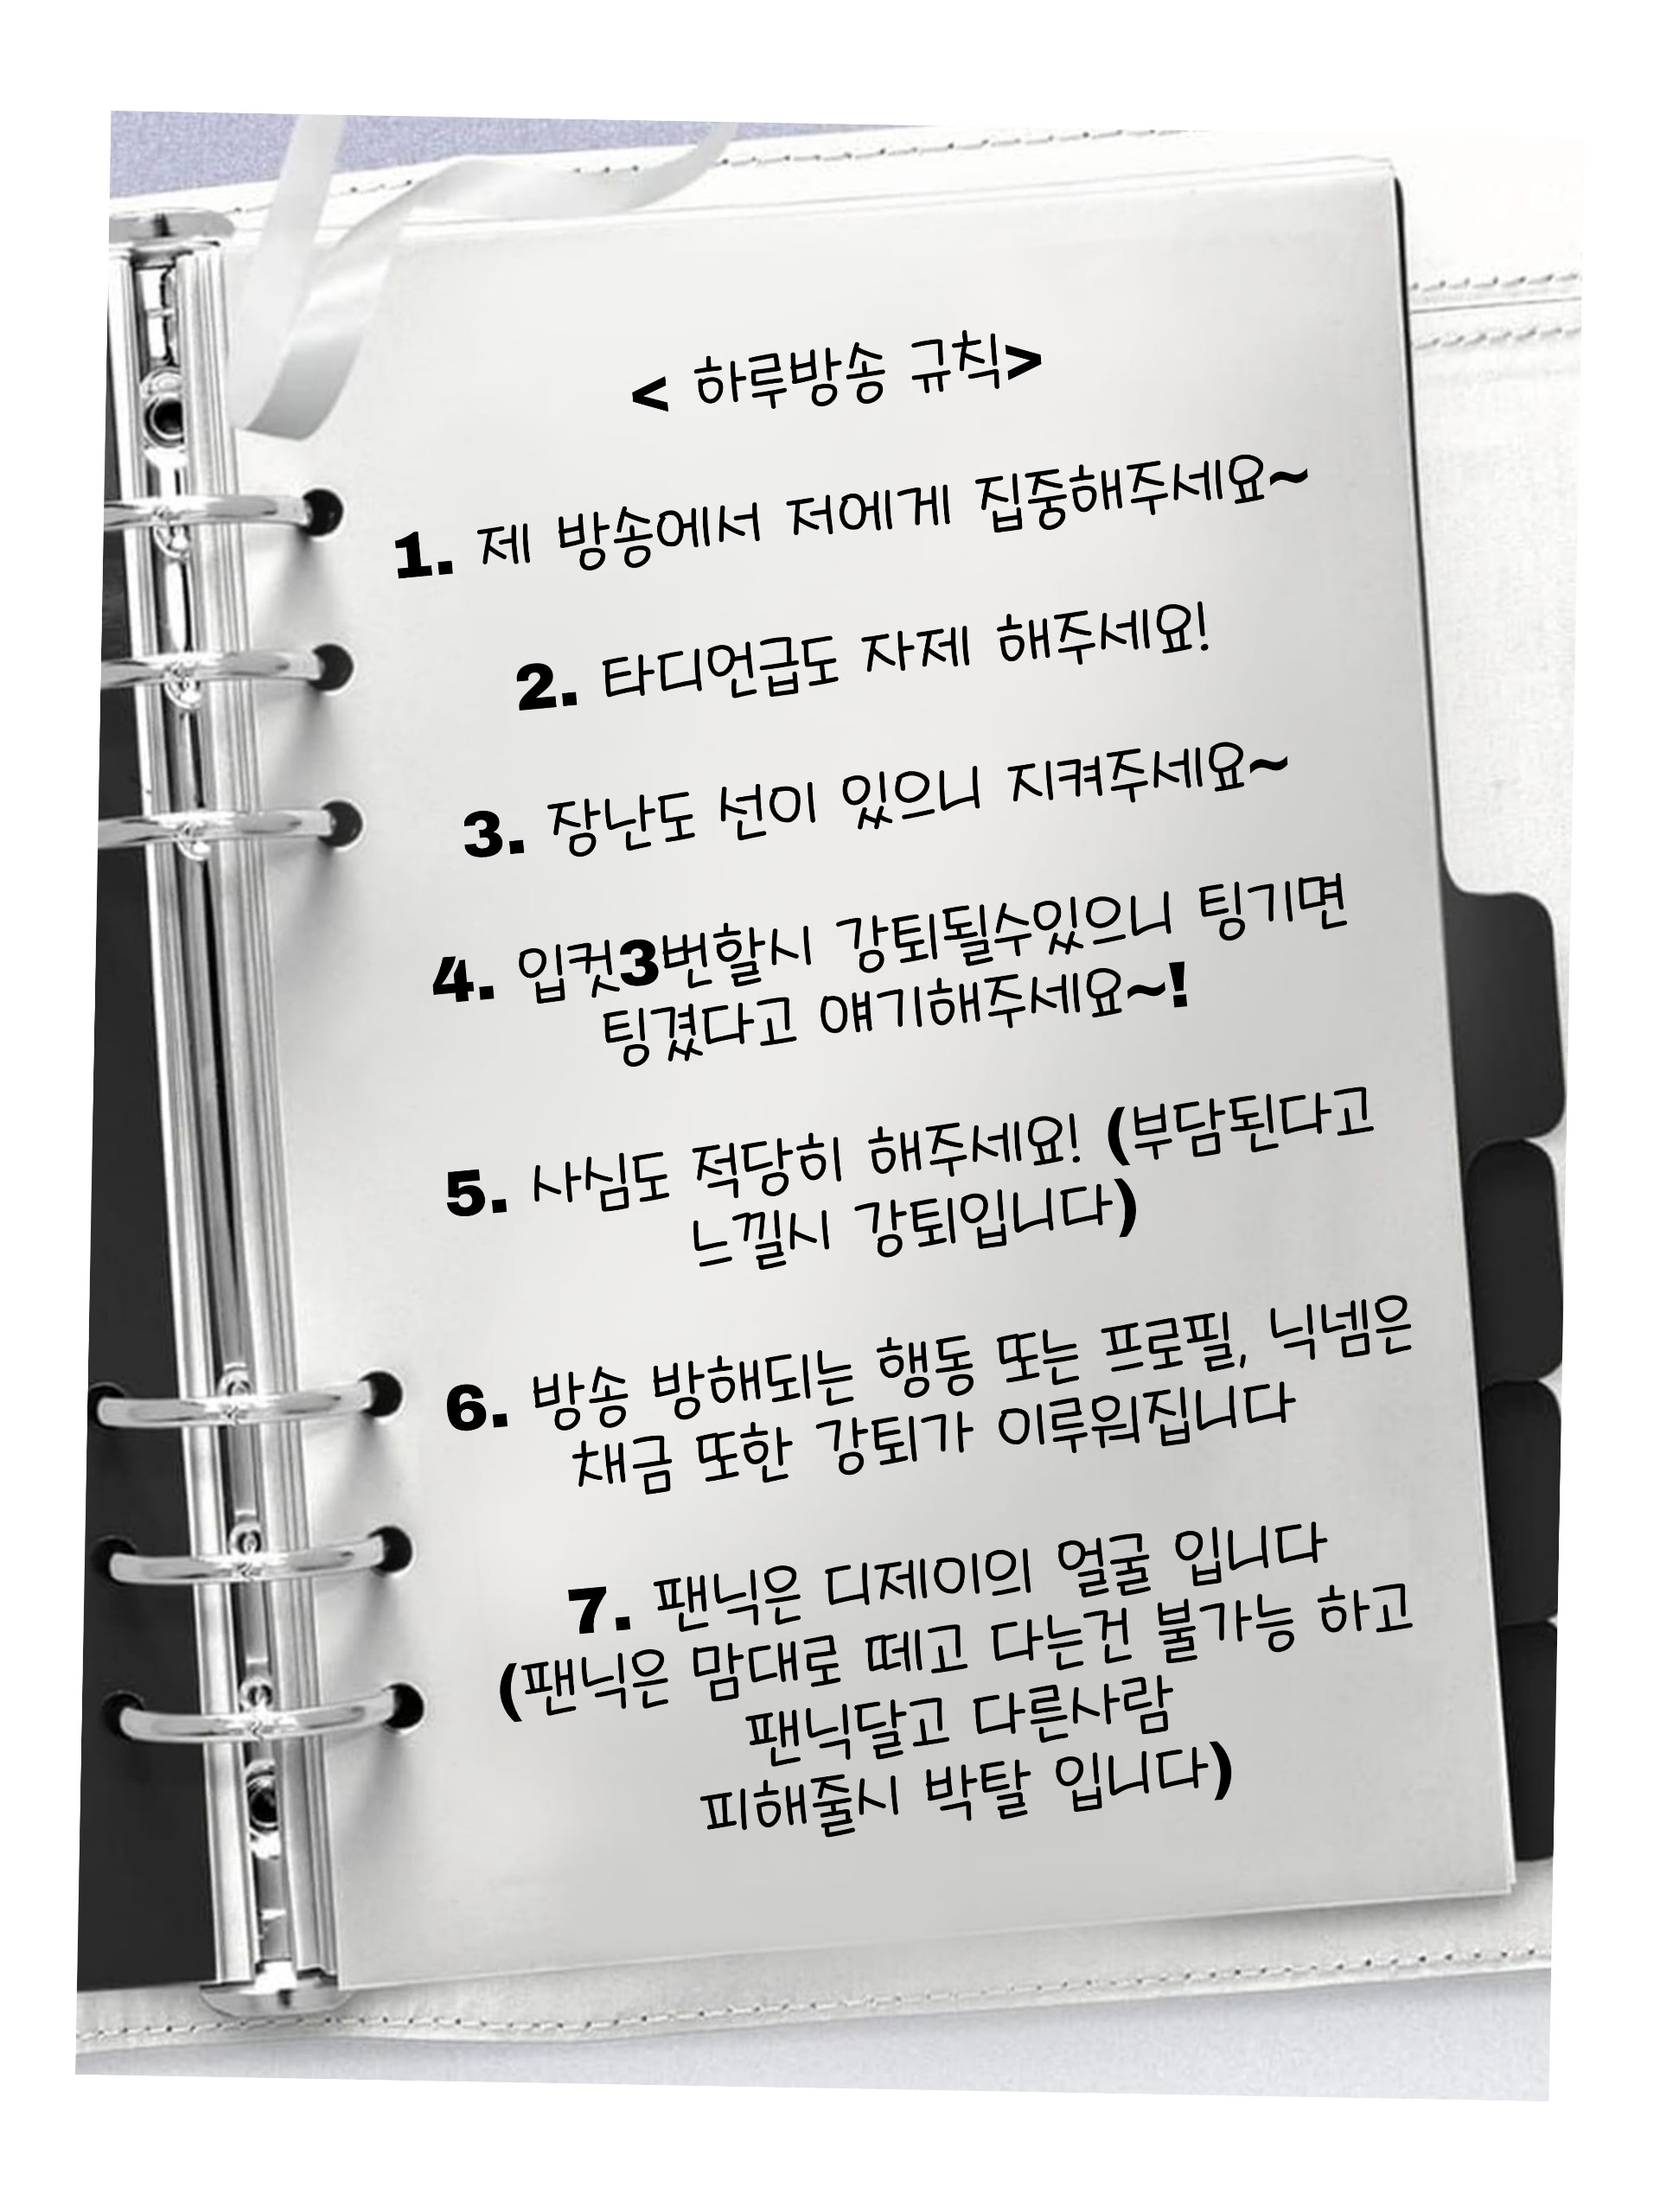 < 하루방송 규칙>
1. 제 방송에서 저에게 집중해주세요~
2. 타디언급도 자제 해주세요!
3. 장난도 선이 있으니 지켜주세요~
4. 입컷3번할시 강퇴될수있으니 팅기면
팅겼다고 얘기해주세요~!
5. 사심도 적당히 해주세요! (부담된다고
느낄시 강퇴입니다)
6. 방송 방해되는 행동 또는 프로필, 닉넴은
채금 또한 강퇴가 이루워집니다
7. 팬닉은 디제이의 얼굴 입니다
(팬닉은 맘대로 떼고 다는건 불가능 하고
팬닉달고 다른사람
피해줄시 박탈 입니다)